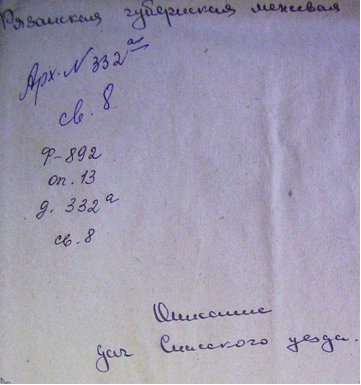 Рязанская губернская межевая
Арх. N 332а
св. 8
Ф-892
оп. 13
д. 332а
св. 8
Описание
дач Спасского уезда.